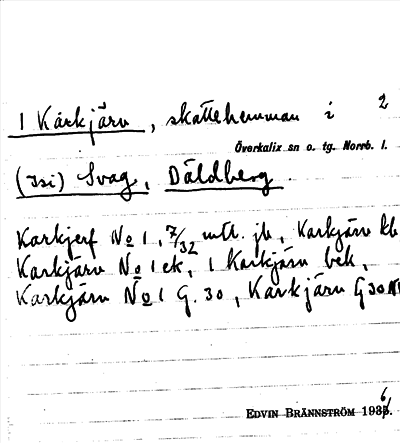 1 Karkjärv, skattehemman i 2
Överkalix sn o. tg. Norrb. l.
(Isi) Svag, Däldberg.
Karkjerf No 1, 7/32 mtl. jb, Karkjärv kb
Karkjärv No 1 ek, 1 Karkjärv bek,
Karkjärv No 1 G. 30, Karkjärv G 30
EDVIN BRÄNNSTRÖM 1936.